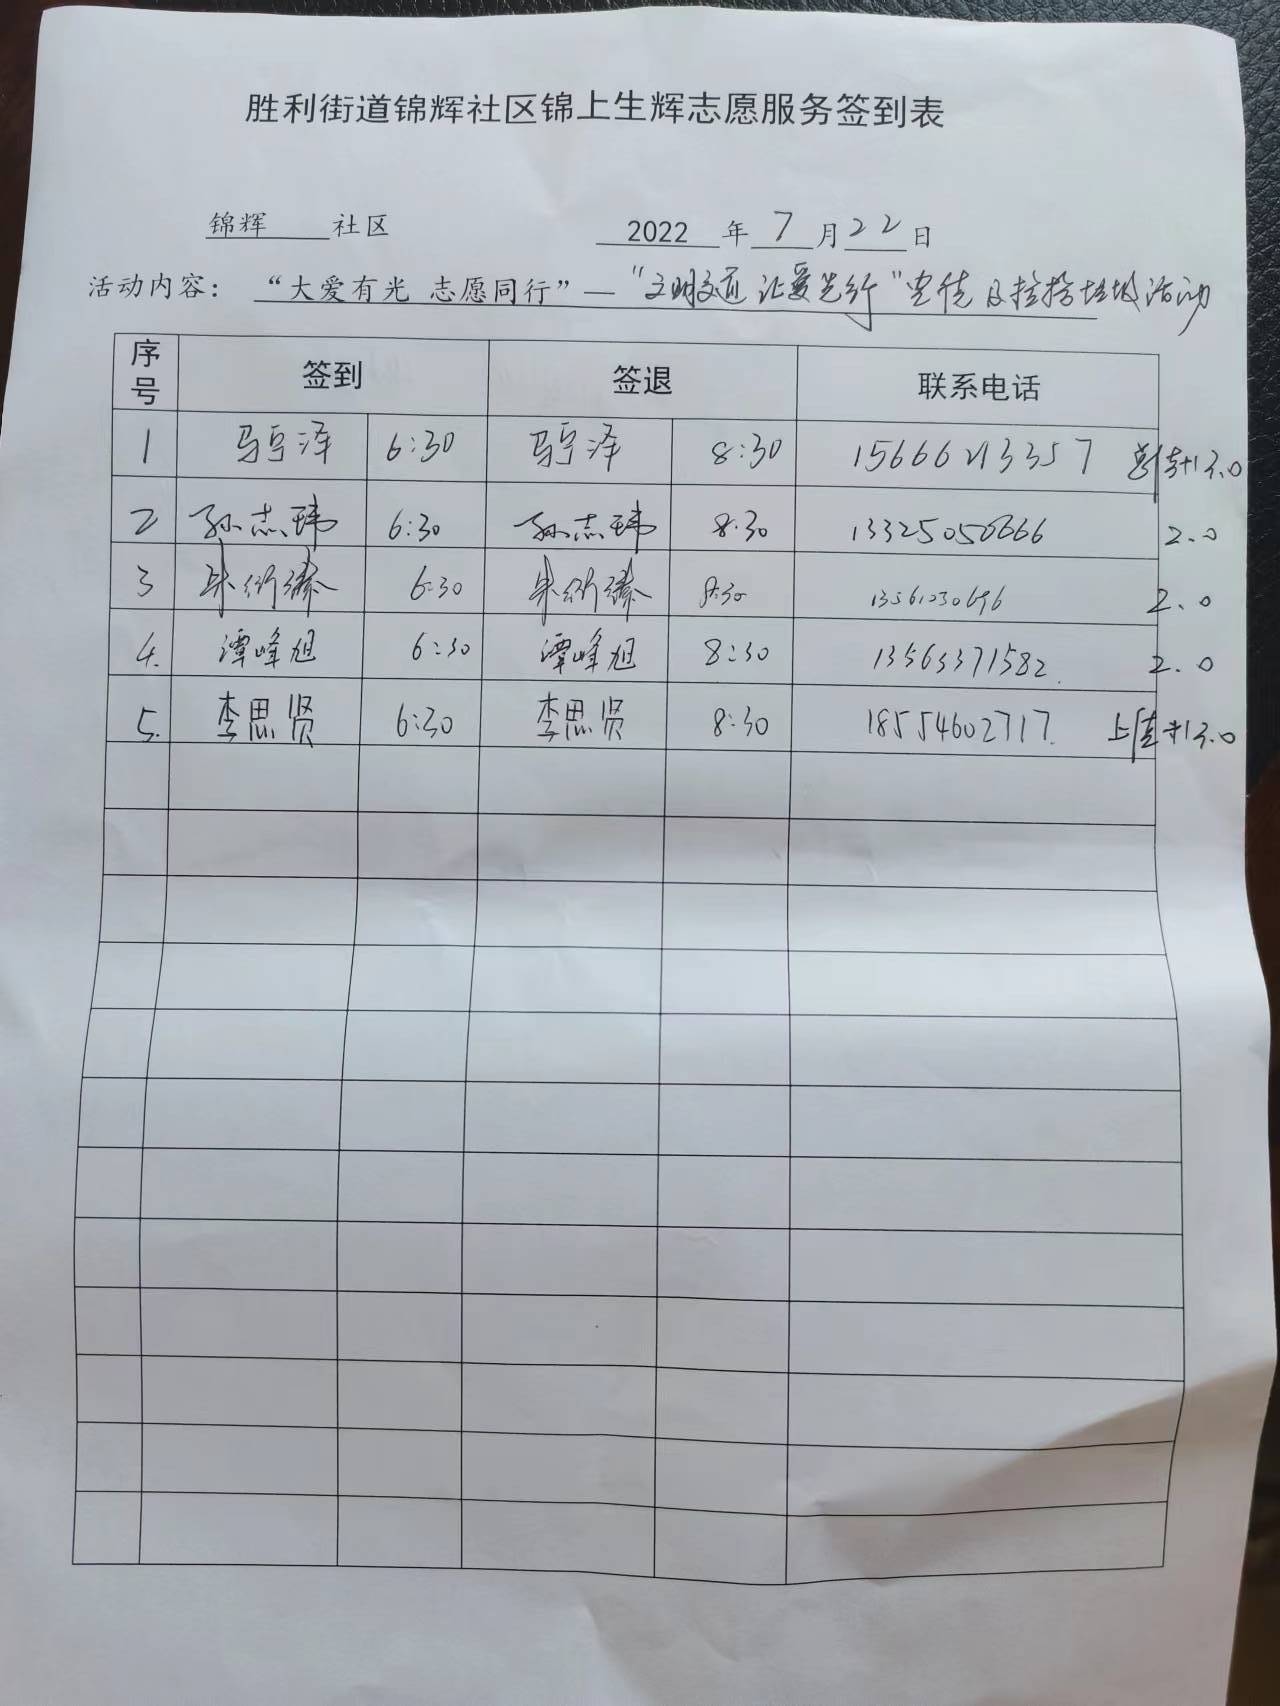 胜利街道锦辉社区锦上生辉志愿服务签到表
锦辉 社区 2022 年 7 月 22 日
活动内容： “大爱有光 志愿同行”—“文明交通 让爱先行”宣传及捡拾垃圾活动
序号 签到 签退 联系电话
1 马宁泽 6:30 马宁泽 8:30 15666213357 +1 3.0
2 孙志玮 6:30 孙志玮 8:30 13325050666 2.0
3 朱衍臻 6:30 朱衍臻 8:30 13561230696 2.0
4. 谭峰旭 6:30 谭峰旭 8:30 13563371582. 2.0
5. 李思贤 6:30 李思贤 8:30 18554602717. +1 3.0